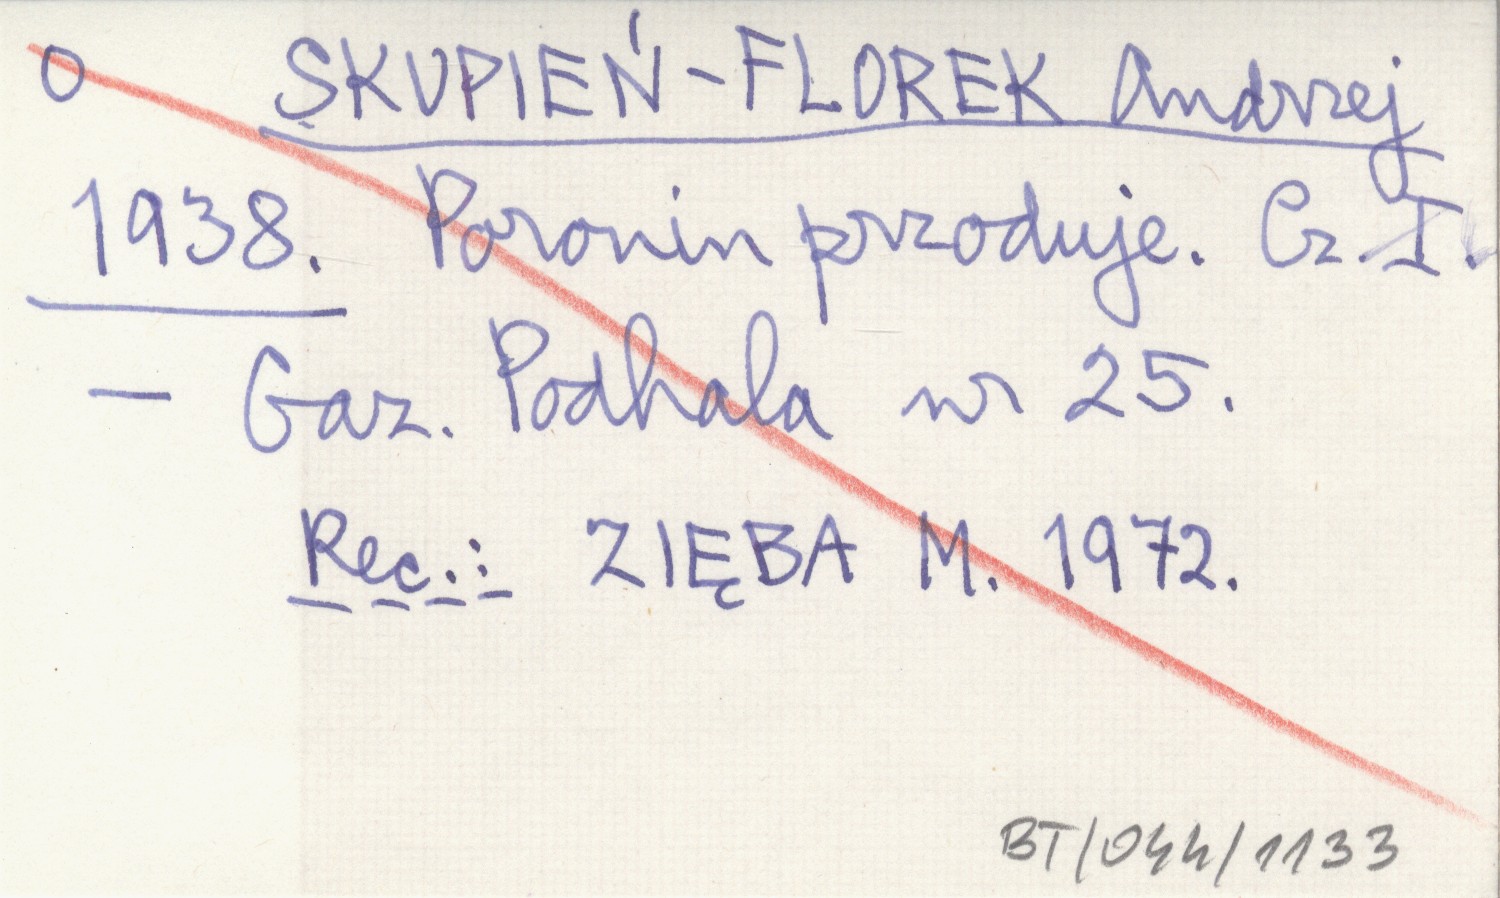 O SKUPIEŃ-FLOREK Andrzej
1938. Poronin przoduje. Cz. I.
— Gaz. Podhala nr 25.
Rec.: ZIĘBA M. 1972.
BT/044/1133